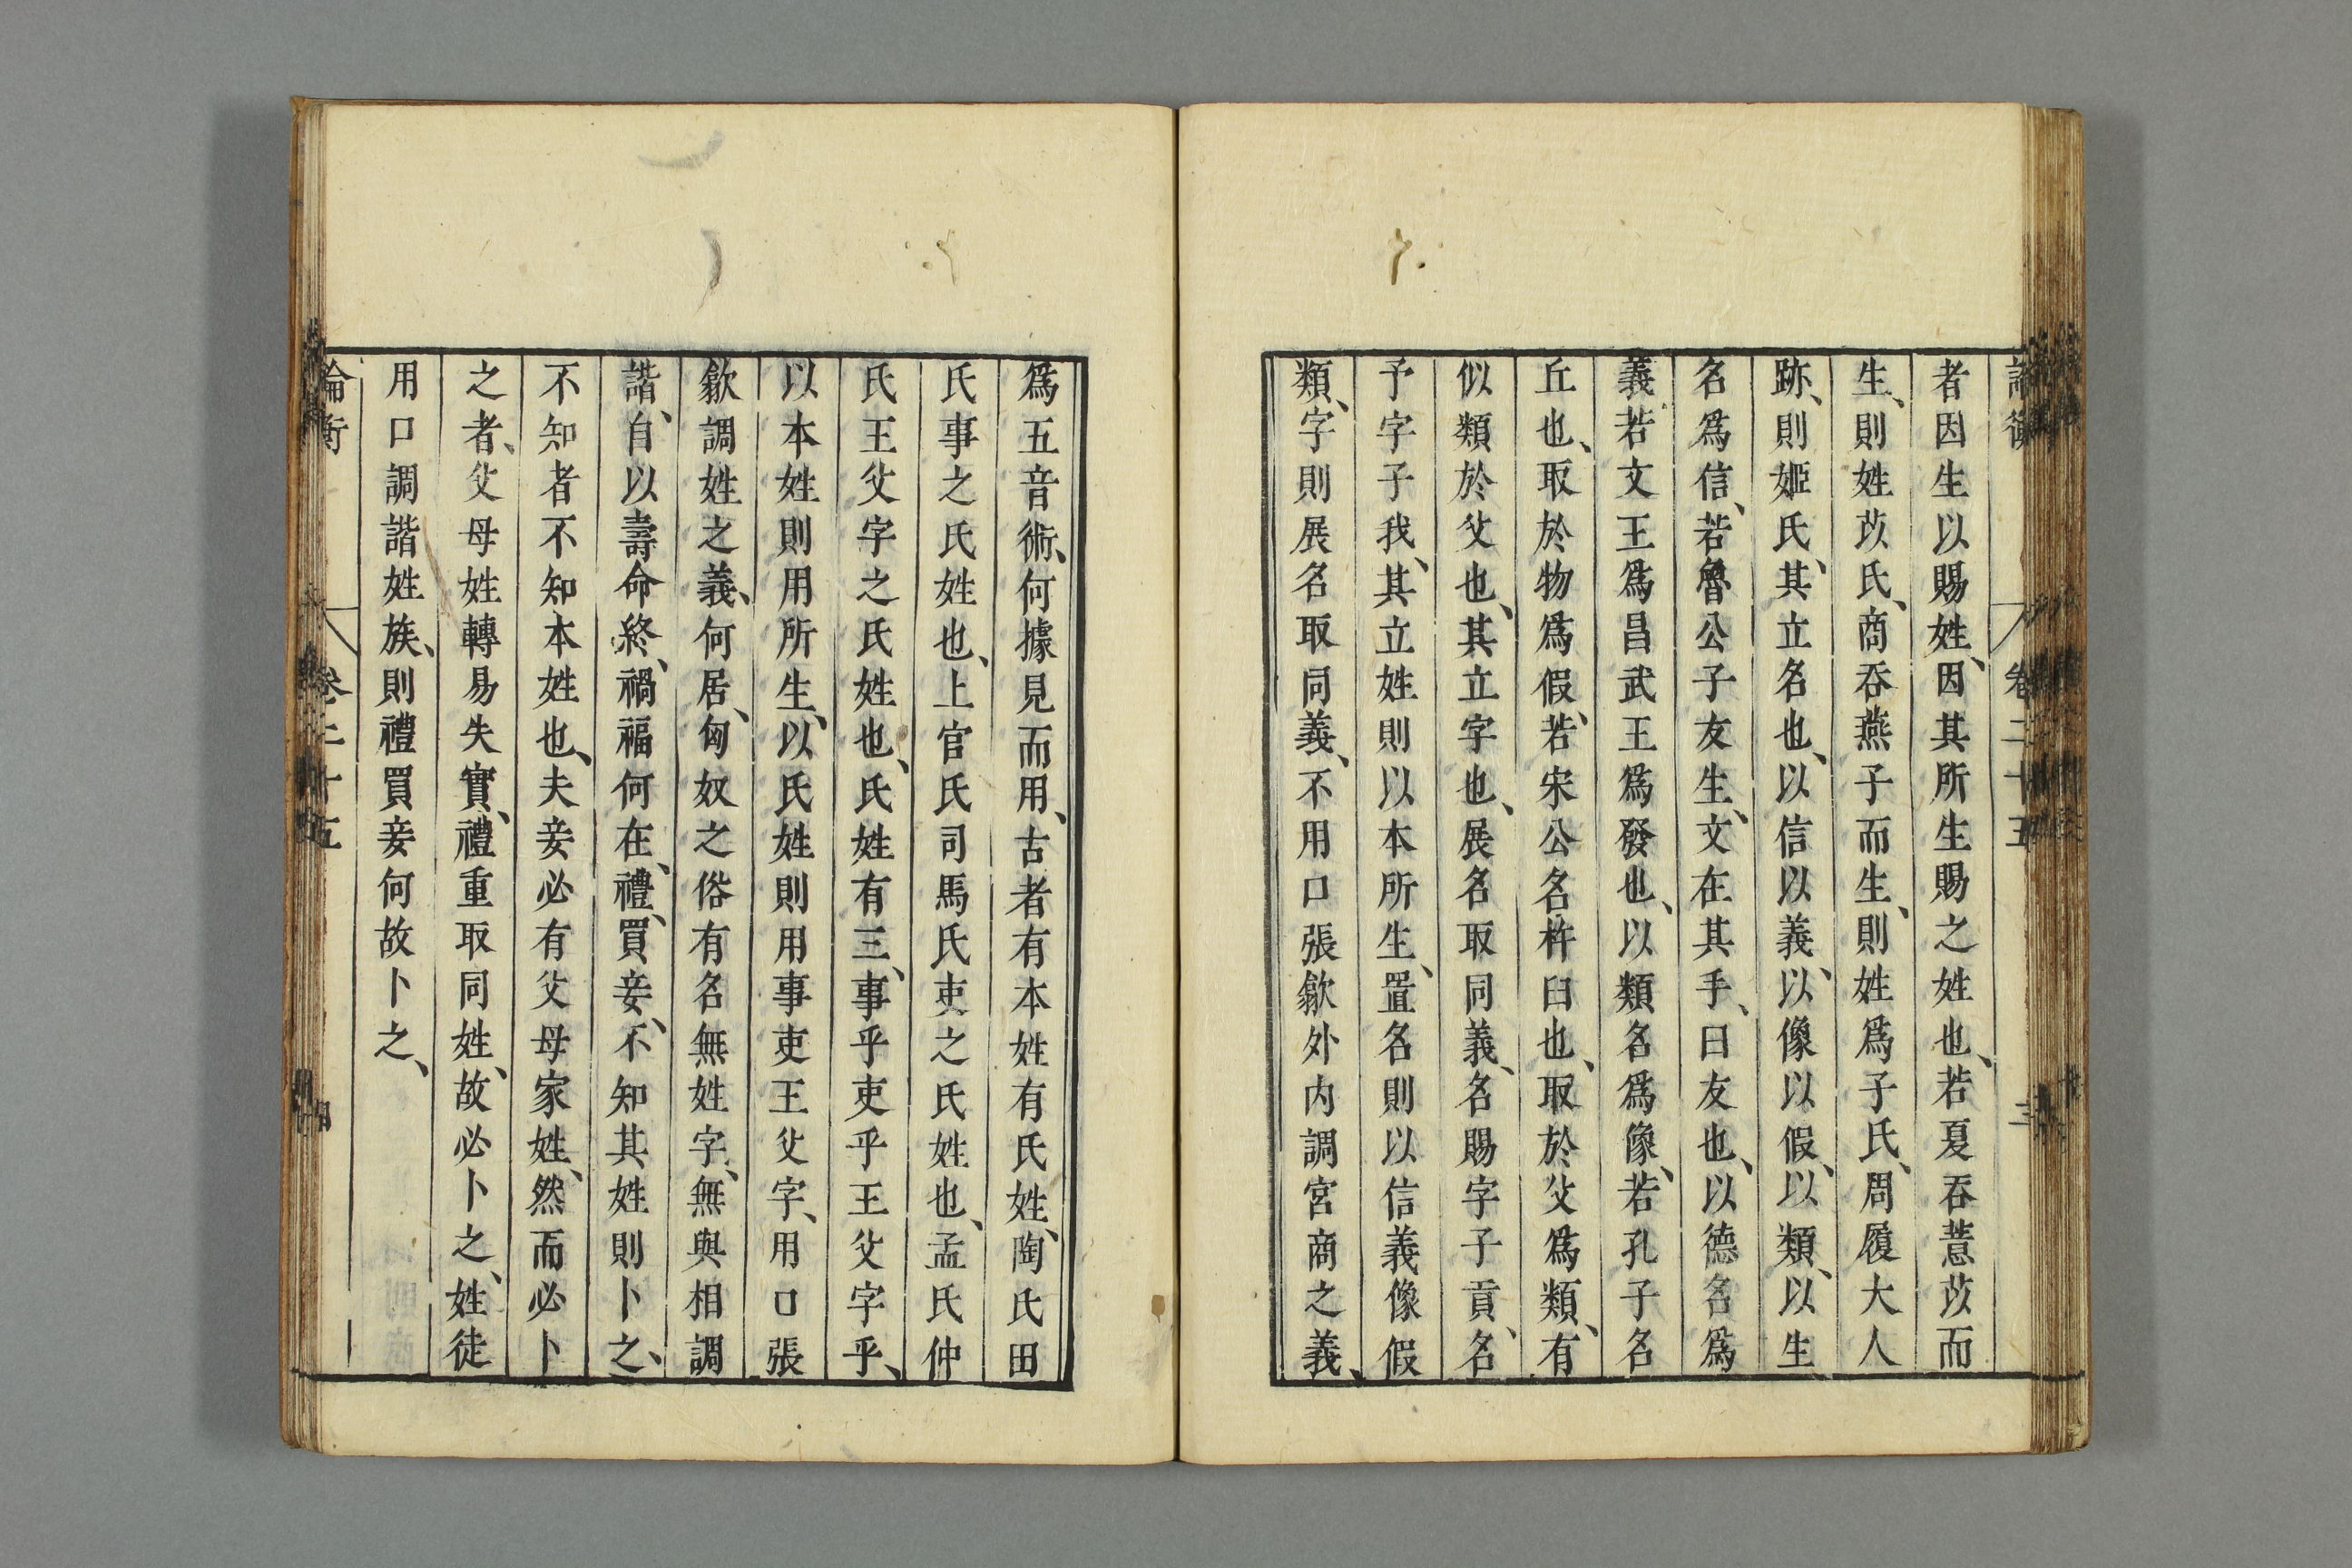 論衡 卷二十五 三
者因生以賜姓、因其所生賜之姓也、若夏吞薏苡而
生、則姓苡氏、商吞燕子而生、則姓爲子氏、周履大人
跡、則姬氏、其立名也、以信以義、以像以假、以類、以生
名爲信、若魯公子友生、文在其手、曰友也、以德名爲
義若文王爲昌武王爲發也、以類名爲像、若孔子名
丘也、取於物爲假、若宋公名杵臼也、取於父爲類、有
似類於父也、其立字也、展名取同義、名賜字子貢、名
予字子我、其立姓則以本所生、置名則以信義像假
類、字則展名取同義、不用口張歙外内調宮商之義、
爲五音術、何據見而用、古者有本姓有氏姓、陶氏田
氏事之氏姓也、上官氏司馬氏吏之氏姓也、孟氏仲
氏王父字之氏姓也、氏姓有三、事乎吏乎王父字乎、
以本姓則用所生、以氏姓則用事吏王父字、用口張
歙調姓之義、何居、匈奴之俗有名無姓字、無與相調
諧、自以壽命終、禍福何在、禮、買妾、不知其姓則卜之、
不知者不知本姓也、夫妾必有父母家姓、然而必卜
之者、父母姓轉易失實、禮重取同姓、故必卜之、姓徒
用口調諧姓族、則禮買妾何故卜之、
論衡 卷二十五 四